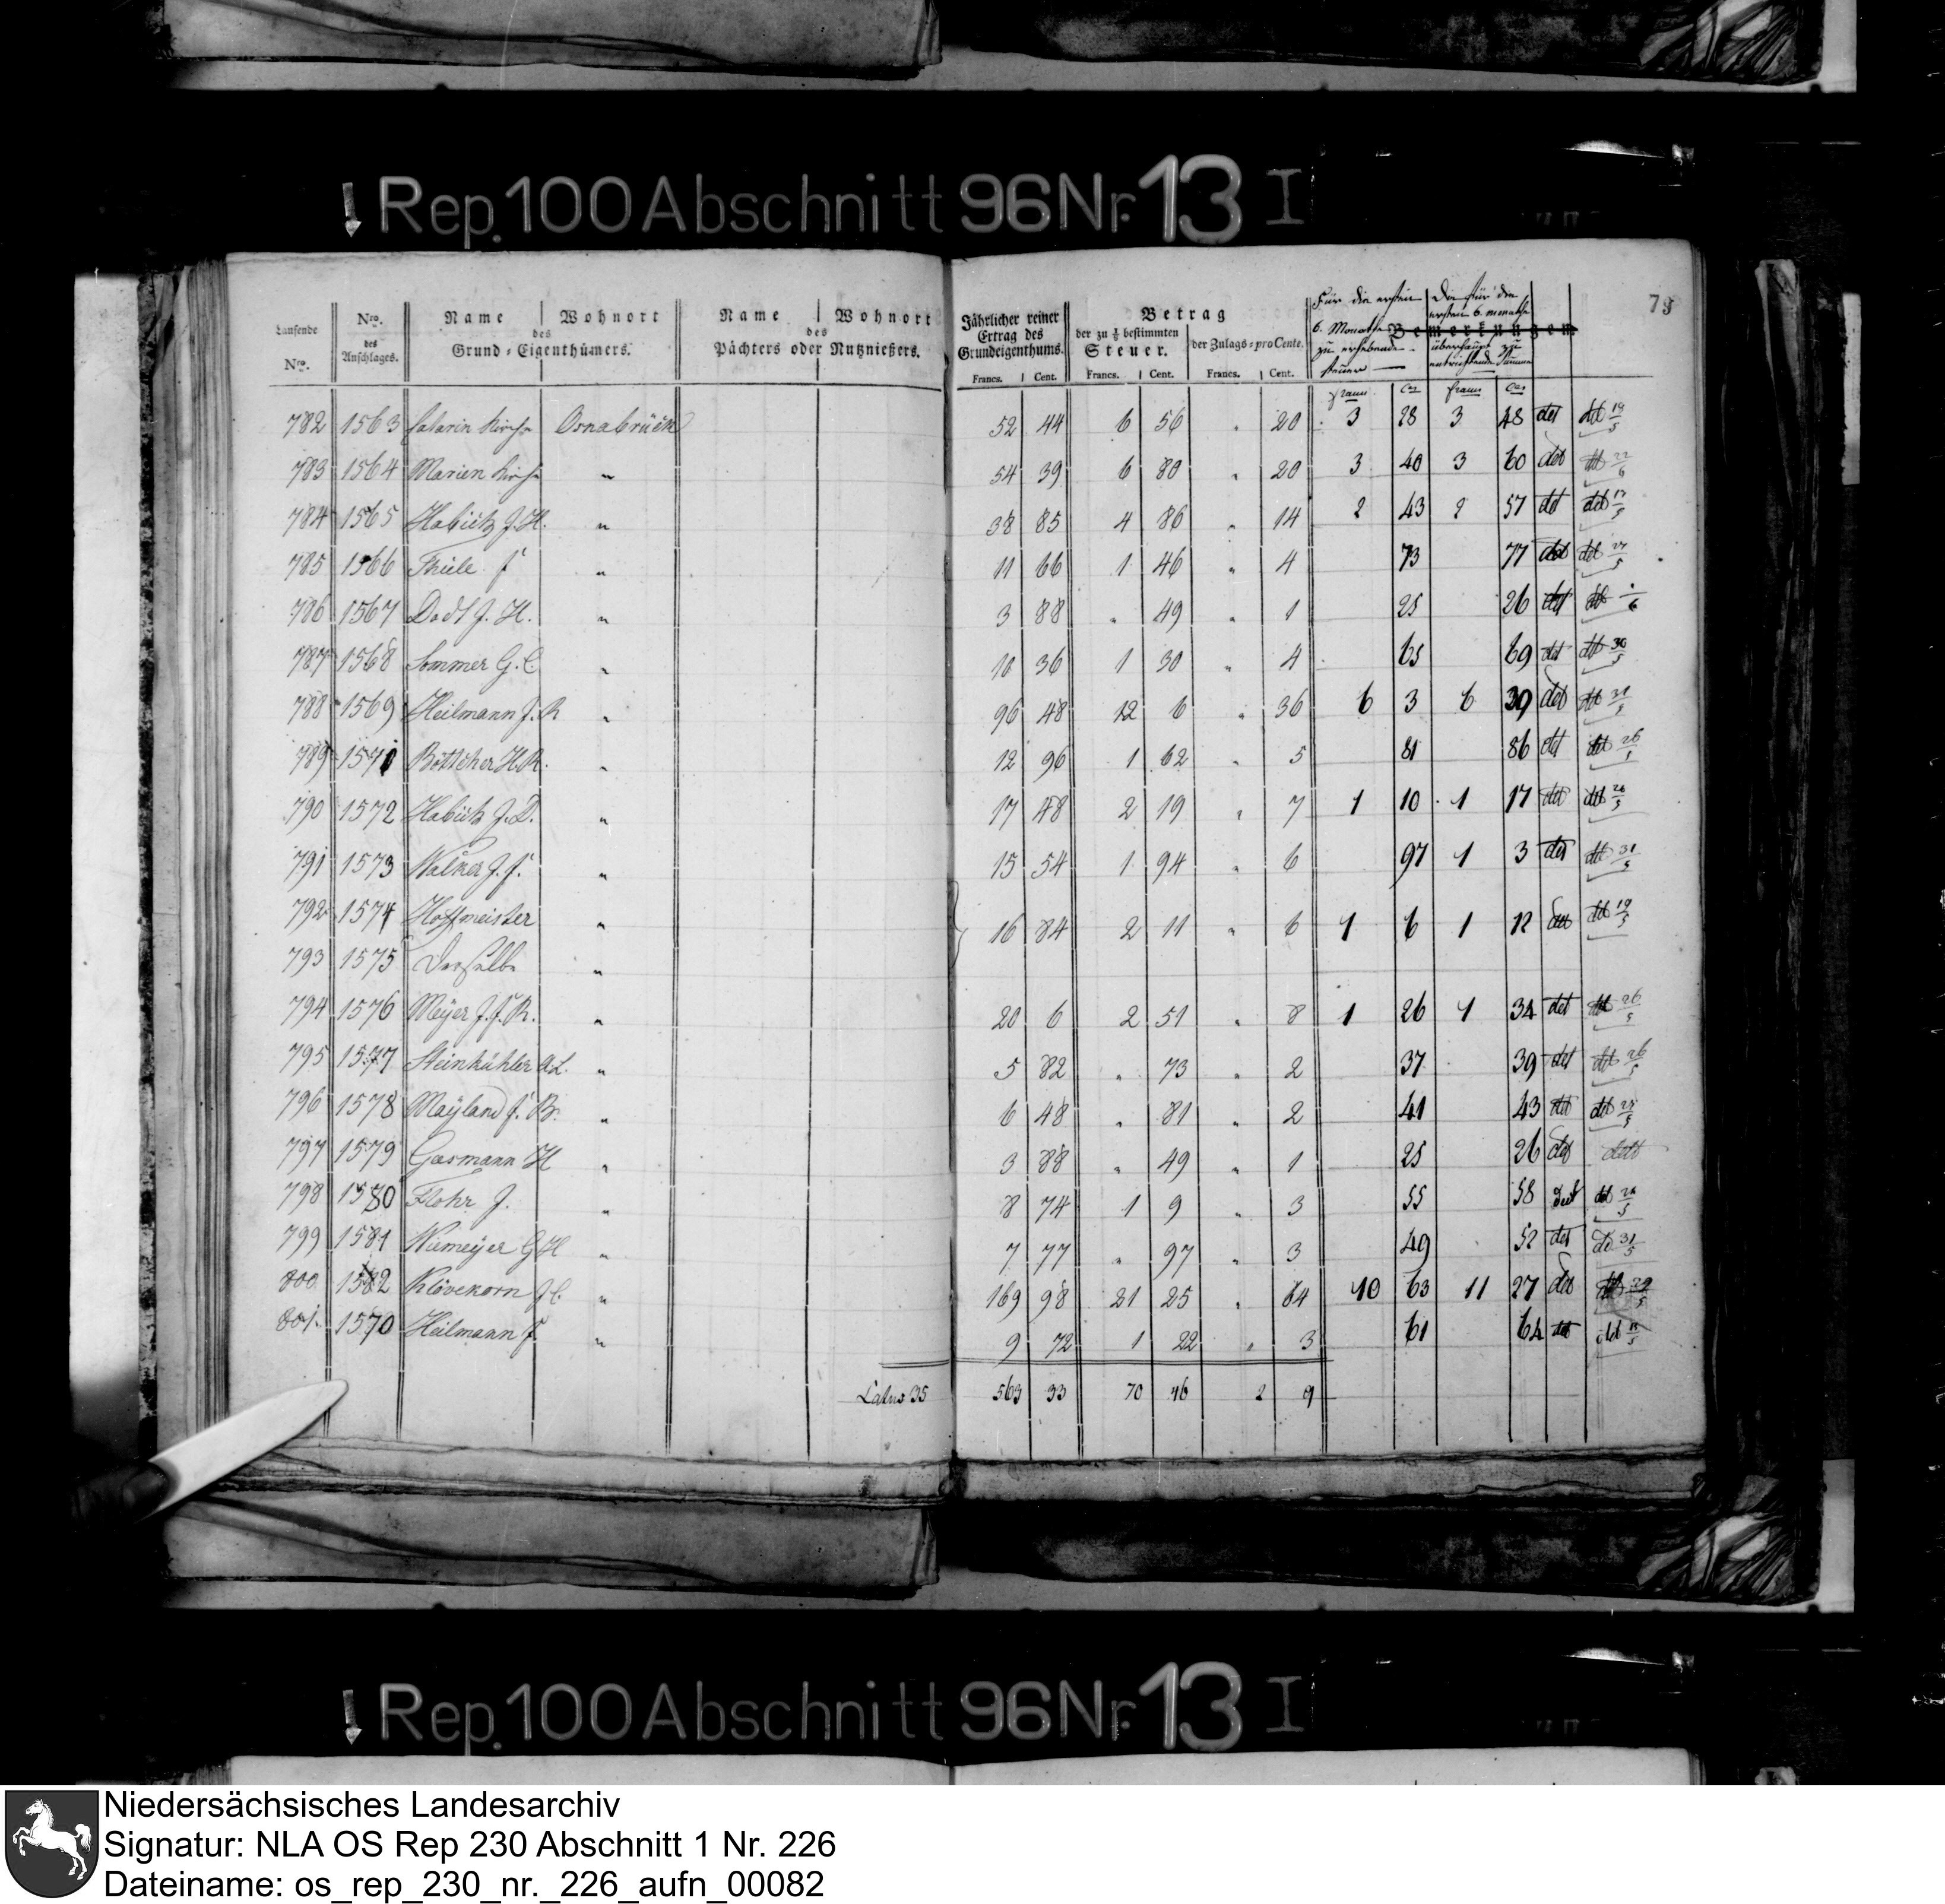 Rep. 100 Abschnitt 96 Nr. 13 I
73
Laufende Nro.
Nro. des Anschlages.
Name Wohnort
des
Grund-Eigenthümers.
Name Wohnort
des
Pächters oder Nutznießers.
Jährlicher reiner Ertrag des Grundeigenthums.
Francs. Cent.
Betrag
der zu 1/8 bestimmten Steuer.
Francs. Cent.
der Zulags-pro Cente.
Francs. Cent.
Für die ersten 6. Monathe zu erhebende Steuer
Die für die ersten 6. monathe überhaupt zu entrichtende Summe
Bemerkungen
782 1563 Catarin Kirche Osnabrück 52 44 6 56 " 20 3 28 3 48 det det 19/5
783 1564 Marien Kirche " 54 39 6 80 " 20 3 40 3 60 det det 22/6
784 1565 Habück J. H. " 38 85 4 86 " 14 2 43 2 57 det det
785 1566 Thiele F " 11 66 1 46 " 4 73 77 det det
786 1567 Dodt J. H. " 3 88 " 49 " 1 25 26 det det
787 1568 Sommer G. C. " 10 36 1 30 " 4 65 69 det det 30/5
788 1569 Heilmann J. R " 96 48 12 6 " 36 6 3 6 39 det det 31/5
789 1571 Böttcher H. R. " 12 96 1 62 " 5 81 86 det det 26/5
790 1572 Habück J. D. " 17 48 2 19 " 7 1 10 1 17 det det 26/5
791 1573 Walker J. F. " 15 54 1 94 " 6 97 1 3 det det 31/5
792 1574 Hoffmeister " 16 84 2 11 " 6 1 6 1 12 det det 19/5
793 1575 Derselbe "
794 1576 Meÿer J. F. R. " 20 6 2 51 " 8 1 26 1 34 det det 26/5
795 1577 Steinkühler " 5 82 " 73 " 2 37 39 det det 26/5
796 1578 Maÿland F. B. " 6 48 " 81 " 2 41 43 det det
797 1579 Gosmann H " 3 88 " 49 " 1 25 26 det dett
798 1580 Flohr J. " 8 74 1 9 " 3 55 58 det det
799 1581 Niemeÿer G H " 7 77 " 97 " 3 49 52 det 31/5
800 1582 Klövekorn J. C. " 169 98 21 25 " 64 10 63 11 27 det det 29/5
801. 1570 Heilmann F " 9 72 1 22 " 3 61 64 det det
Latus 35 563 33 70 46 2 9
Rep. 100 Abschnitt 96 Nr. 13 I
Niedersächsisches Landesarchiv
Signatur: NLA OS Rep 230 Abschnitt 1 Nr. 226
Dateiname: os_rep_230_nr._226_aufn_00082